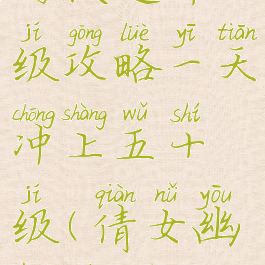 jí gōng lüè yī tiān
级攻略一天
chōng shàng wǔ shí
冲上五十
jí qiàn nǚ yōu
级(倩女幽